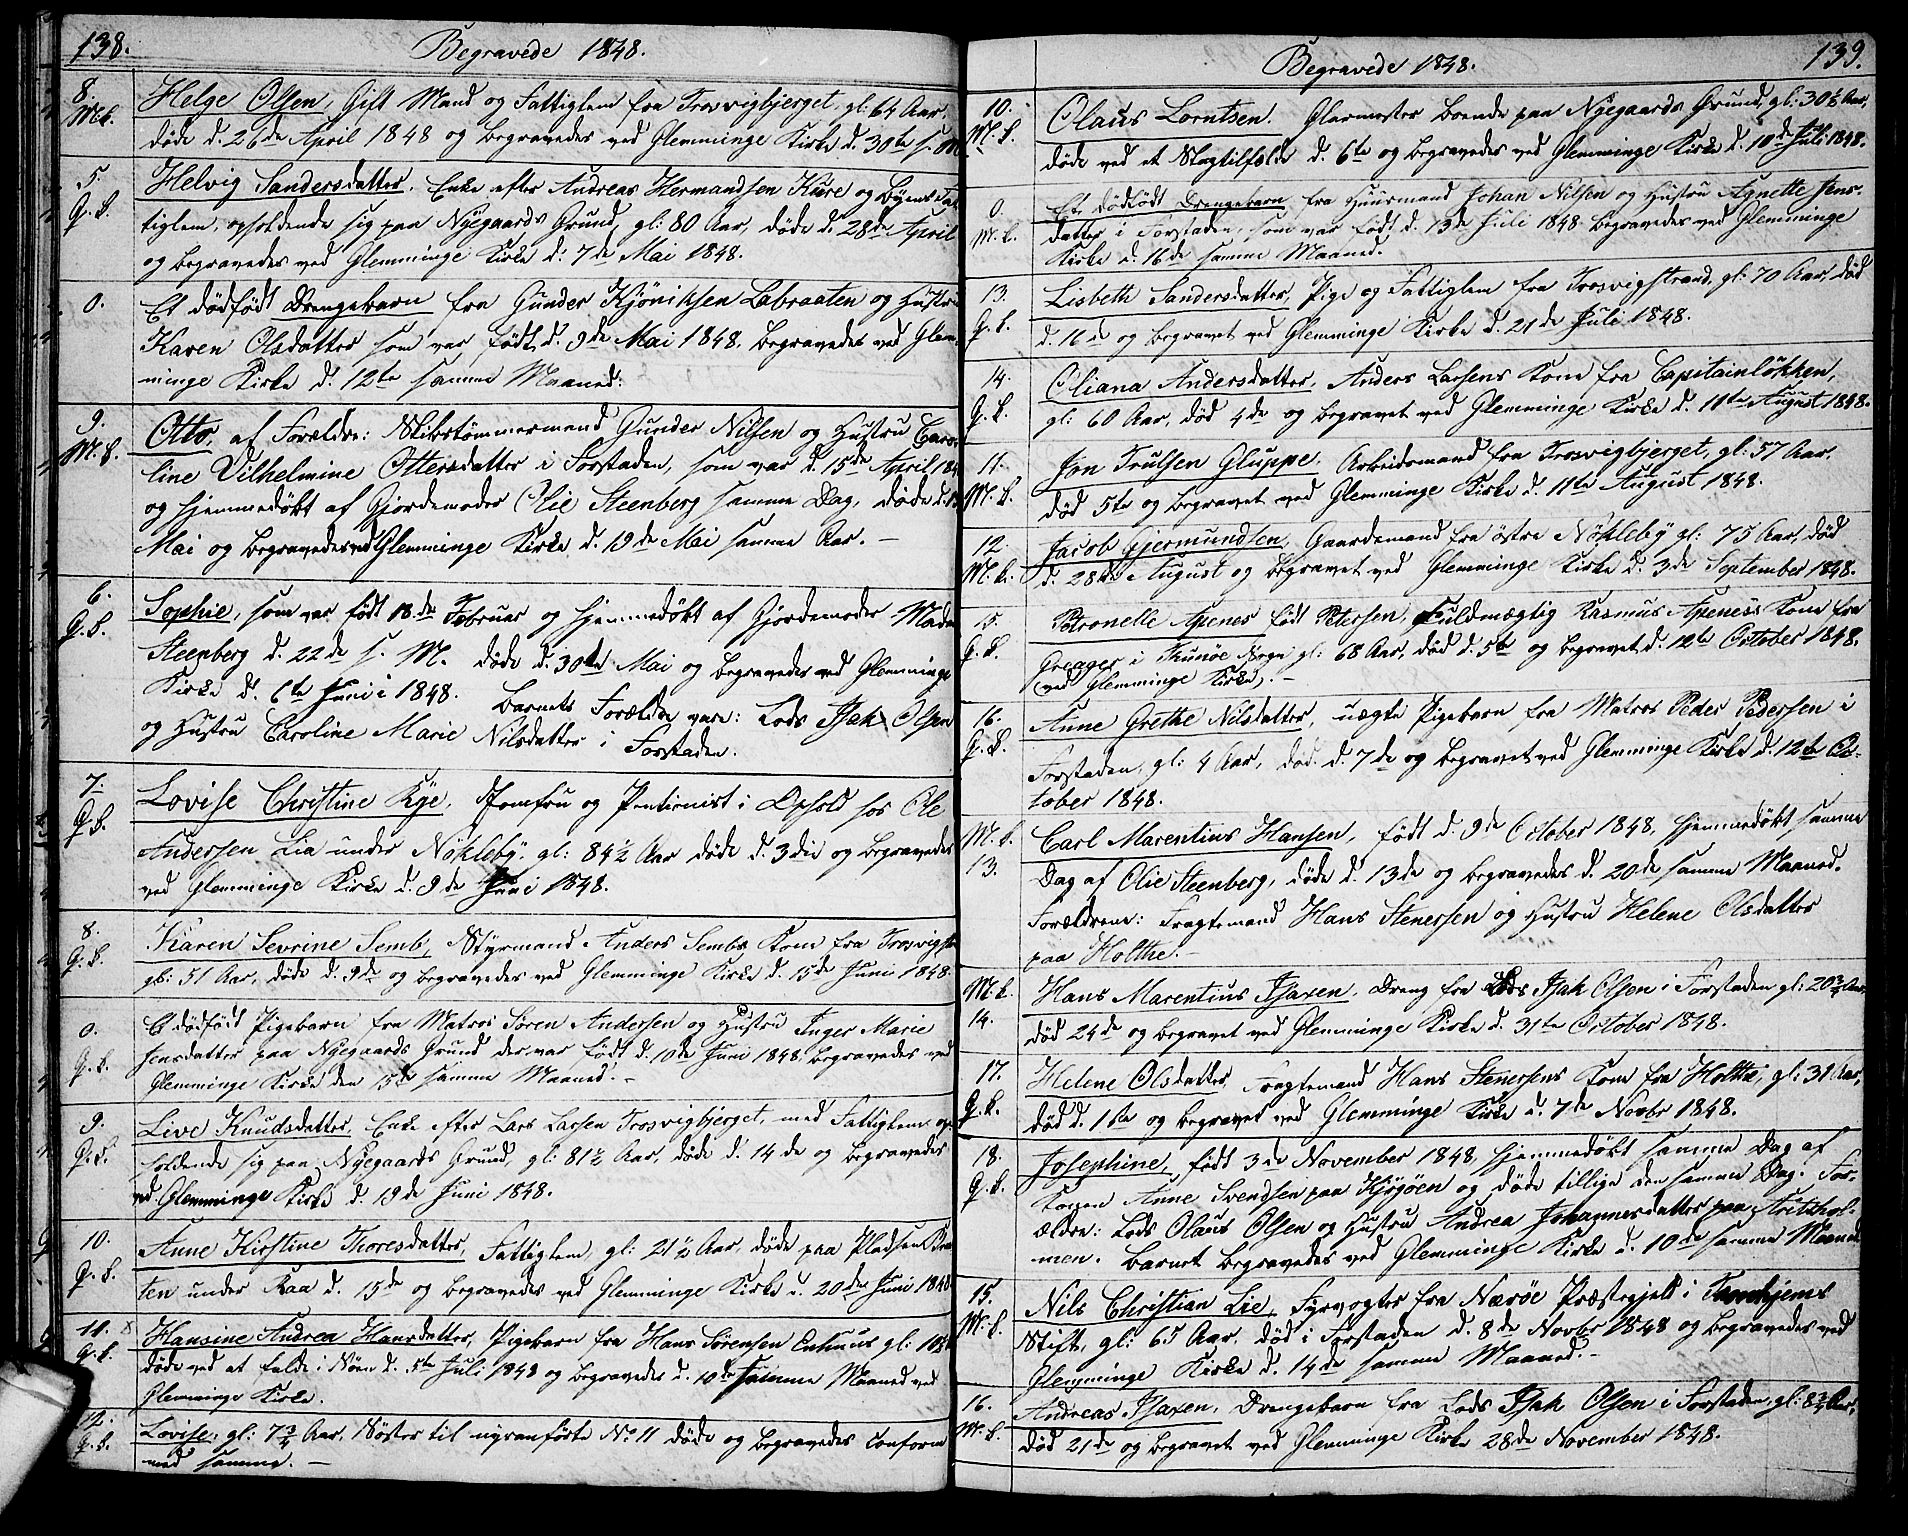 138.
Begravede 1848.
8. Helge Olsen, Gift Mand og Fattiglem fra Trosvigbjerget, gl: 64 Aar,
døde d. 26de April 1848 og begravedes ved Glemminge Kirke d. 30te s. M
5. Helvig Sandersdatter, Enke efter Andreas Hermandsen Kure og Byens Fat
G. L. tiglem, opholdende sig paa Nyegaards Grund, gl: 80 Aar, døde d. 28de April
og begravedes ved Glemminge Kirke d: 7de Mai 1848.
0. Et dødfødt Drengebarn fra Gunder Kjöniksen Labraaten og Hustru
Karen Olsdatter som var født d. 9de Mai 1848, begravedes ved Glem-
minge Kirke d. 12te samme Maaned.
9. Otto, af Forældre: Skibstømmermand Gunder Nilsen og Hustru Caro-
M. L. line Vilhelmine Ottersdatter i Forstaden, som var d. 15de April 184
og hjemmedøbt af Gjordemoder Olie Steenberg samme Dag, døde d. 1
Mai og begravedes ved Glemminge Kirke d. 19de Mai samme Aar. -
6. Sophie, som var født 18de Februar og hjemmedøbt af Gjordemoder Mada
G. L. Steenberg d. 22de s. M. døde d. 30te Mai og begravedes ved Glemminge
Kirke d. 6te Juni 1848. Barnets Forældre vare: Lods Isak Olsen
og Hustru Caroline Marie Nilsdatter i Forstaden.
7. Lovise Christine Rye, Jomfru og Pentionist i Ophold hos Ole
G. L. Andersen Lia under Nökleby, gl: 84½ Aar døde d. 3die og begravedes
ved Glemminge Kirke d. 9de Juni 1848.
8. Karen Sevrine Semb, Styrmand Anders Sembs Kone fra Trosvigstr
G. L. gl: 51 Aar, døde d. 9de og begravedes ved Glemminge Kirke d. 15de Juni 1848.
0. Et dødfødt Pigebarn fra Matros Sören Andersen og Hustru Inger Marie
G. L. Jensdatter paa Nyegaards Grund der var født d. 10de Juni 1848, begravedes ved
Glemminge Kirke den 15de samme Maaned. -
9. Live Knudsdatter, Enke efter Lars Larsen Trosvigbjerget, med Fattiglem op-
G. L. holdende sig paa Nyegaards Grund, gl: 81½ Aar, døde d. 14de og begravedes
ved Glemminge Kirke d. 19de Juni 1848.
10. Anne Kirstine Thoresdatter, Fattiglem, gl: 21½ Aar, døde paa Pladsen Braa
G. L. ten under Raa d. 15de og begravedes ved Glemminge Kirke d. 20de Juni 1848
11. Hansine Andrea Hansdatter, Pigebarn fra Hans Sörensen Enhuus gl: 10
G. L. døde ved at falde i Söen d. 5te Juli 1848 og begravedes d. 10de samme Maaned ved
Glemminge Kirke.
12. Lovise, gl: 7¾ Aar, Söster til nyanførte No 11 døde og begravedes conform
G. L. med samme. -
139.
Begravede 1848.
10. Olaus Lorntsen, Glarmester boende paa Nyegaards Grund, gl: 30½ Aar,
M. L. døde ved et Slagtilfælde d. 6te og begravedes ved Glemminge Kirke d. 10de Juli 1848.
0. Et dødfødt Drengebarn fra Huusmand Johan Nilsen og Hustru Agnette Jens-
M. L. datter i Forstaden, som var født d. 13de Juli 1848 begravedes ved Glemminge
Kirke d. 16de samme Maaned.
13. Lisbeth Sandersdatter, Pige og Fattiglem fra Trosvigstrand, gl: 70 Aar, død
G. L. d. 16de og begravet ved Glemminge Kirke d. 21de Juli 1848.
14. Oliana Andersdatter, Anders Larsens Kone fra Capitainlökken,
G. L. gl: 60 Aar, død 4de og begravet ved Glemminge Kirke d. 11te August 1848.
11. Jon Trulsen Gluppe, Arbeidsmand fra Trosvigbjerget, gl: 57 Aar,
M. L. død 5te og begravet ved Glemminge Kirke d. 11te August 1848.
12. Jacob Gjermundsen, Gaardmand fra östre Nökleby gl: 75 Aar, død
M. L. d. 28de August og begravet ved Glemminge Kirke d. 3de September 1848.
15. Petronelle Apenes født Petersen, Fuldmægtig Rasmus Apenes's Kone fra
G. L. Greager i Thunöe Sogn gl: 68 Aar, død d. 5te og begravet d. 12te October 1848.
(ved Glemminge Kirke). -
16. Anne Grethe Nilsdatter, uægte Pigebarn fra Matros Peder Pedersen i
G. L. Forstaden, gl: 4 Aar, død d. 7de og begravet ved Glemminge Kirke d. 12te Oc-
tober 1848.
M. L. Carl Marentius Hansen, født d. 9de October 1848, hjemmedøbt samme
13. Dag af Olie Steenberg, døde d. 13de og begravedes d. 20de samme Maaned.
Forældrene: Fragtemand Hans Stenersen og Hustru Helene Olsdatter
paa Holthe. -
M. L. Hans Marentius Isaxen, Dreng fra Lods Isak Olsen i Forstaden gl: 20¾ Aar,
14. død 24de og begravet ved Glemminge Kirke d. 31te October 1848.
17. Helene Olsdatter, Fragtemand Hans Stenersens Kone fra Holthe, gl: 31 Aar,
G. L. død d. 1ste og begravet ved Glemminge Kirke d. 7de Novbr 1848.
18. Josephine, født 3de November 1848, hjemmedøbt samme Dag af
G. L. Konen Anne Svendsen paa Kjøgöen og døde tillige den samme Dag. For-
ældre: Lods Olaus Olsen og Hustru Andrea Johannesdatter paa Aritshol-
men. Barnet begravedes ved Glemminge Kirke d. 10de samme Maaned
15. Nils Christian Lie, Fyrvogter fra Næröe Præstegjeld i Tronhjems
M. L. Stift, gl: 65 Aar, død i Forstaden d. 8de Novbr 1848 og begravedes ved
Glemminge Kirke d. 14de samme Maaned. -
16. Andreas Isaxen, Drengebarn fra Lods Isak Olsen i Forstaden, gl: 8¾ Aar,
M. L. død 21de og begravet ved Glemminge Kirke 28de November 1848.